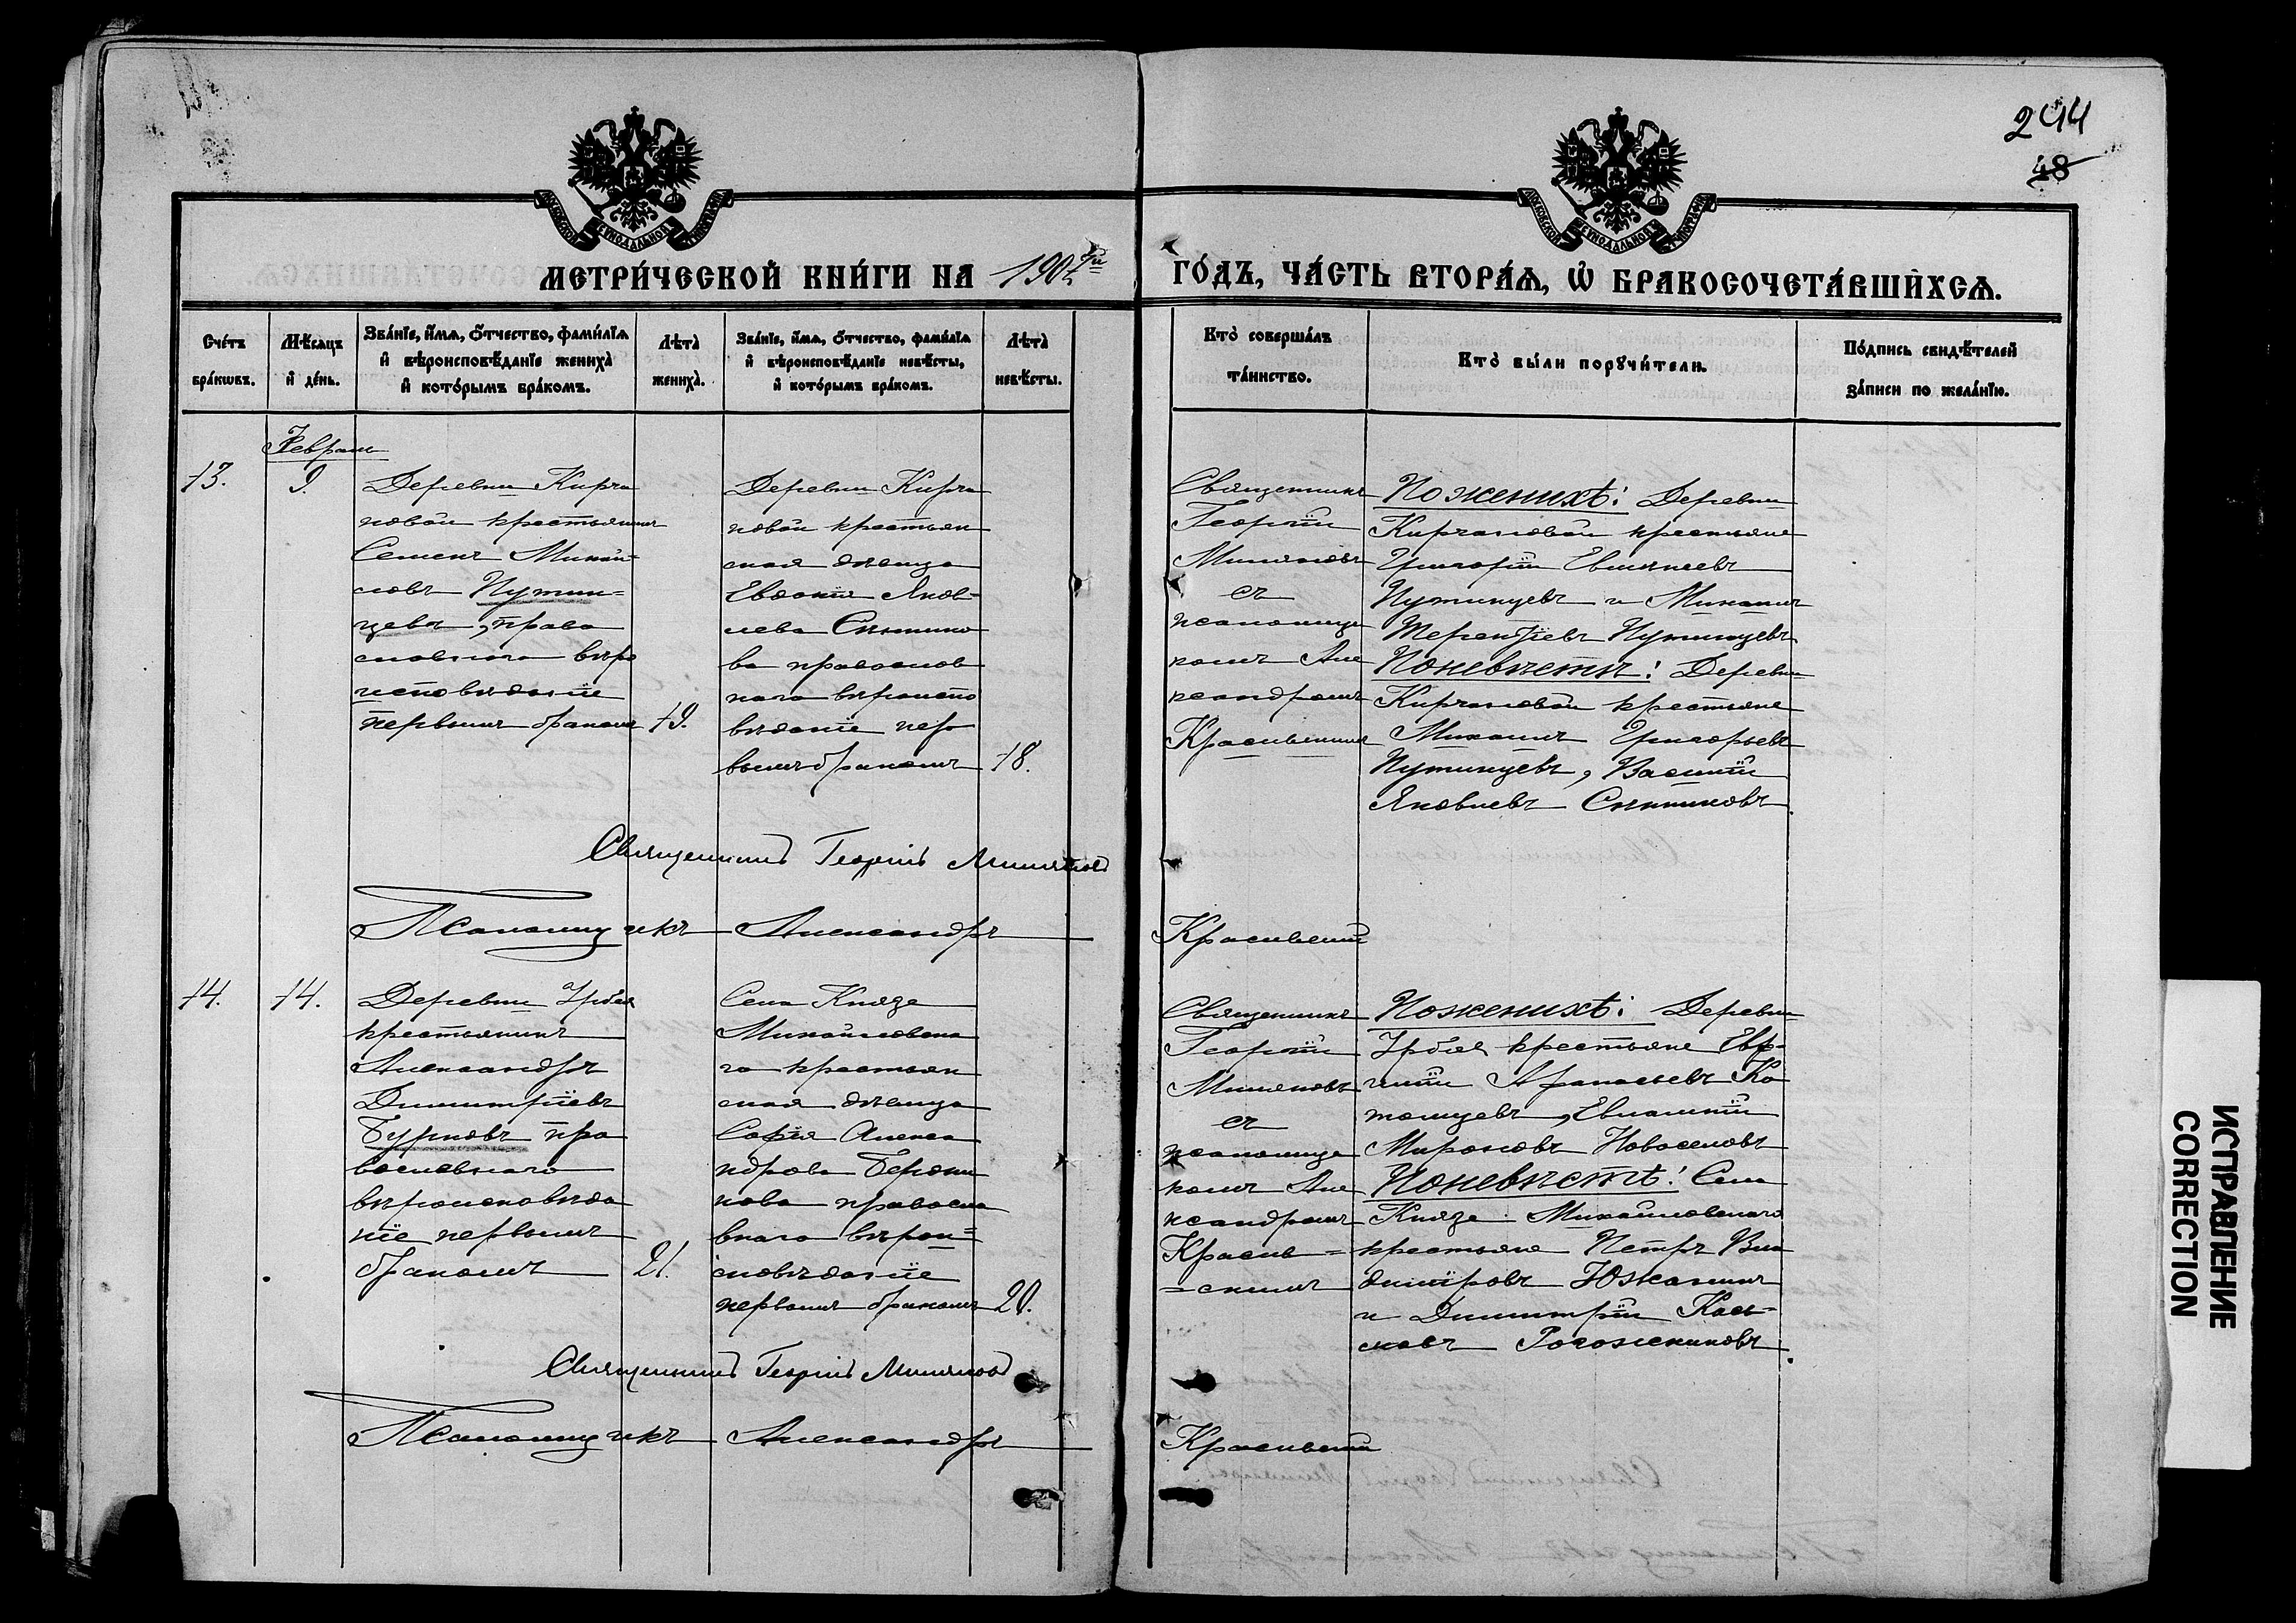 244
48
МОСКОВСКОЙ СѴНОДАЛЬНОЙ ТѴПОГРАФІИ
МОСКОВСКОЙ СѴНОДАЛЬНОЙ ТѴПОГРАФІИ
МЕТРИ́ЧЕСКОЙ КНИ́ГИ НА 190
ГО́ДЪ, ЧА́СТЬ ВТОРА́Ѧ, Ѽ БРАКОСОЧЕТА́ВШИХСѦ.
Сче́тъ бра́кѡвъ.
Мѣ́сѧцъ и҆ де́нь.
Зва́нїе, и҆́мѧ, ѻ҆́тчество, фами́лїѧ и҆ вѣроисповѣ́данїе жениха̀ и҆ кото́рымъ бра́комъ.
Лѣта̀ жениха̀.
Зва́нїе, и҆́мѧ, ѻ҆́тчество, фами́лїѧ и҆ вѣроисповѣ́данїе невѣ́сты, и҆ кото́рымъ бра́комъ.
Лѣта̀ невѣ́сты.
Кто̀ соверша́лъ та́инство.
Кто̀ бы́ли порꙋчи́тели.
По́дпись свидѣ́телей за́писи по жела́нїю.
Февраль
13.
9.
Деревни Кирча
новой крестьянинъ
Семенъ Михай-
ловъ Путин-
цевъ, право
славнаго вѣро
исповѣданіе
первымъ бракомъ
19.
Деревни Кирча
новой крестьян
ская дѣвица
Евдокія Яков-
лева Сытнико
ва православ
наго вѣроиспо
вѣданіе пер
вымъ бракомъ
18.
Священникъ
Георгій
Миляковъ
съ
псаломщи
комъ Але
ксандромъ
Красивскимъ
По женихѣ: Деревни
Кирчановой крестьяне
Григорій
Путинцевъ и Михаилъ
Терентіевъ Путинцевъ
По невѣстѣ: Деревни
Кирчановой крестьяне
Михаилъ Григорьевъ
Путинцевъ, Василій
Яковлевъ Сытниковъ.
Священникъ Георгій Миляковъ
Псаломщикъ Александръ Красивскій
14.
14.
Деревни Урбея
крестьянинъ
Александръ
Димитріевъ
Бурковъ пра
вославнаго
вѣроисповѣда
ніе первымъ
бракомъ
21.
Села Князе
Михайловска
го крестьян
ская дѣвица
Софія Алекса
ндрова
православ
внаго вѣрои=
сповѣданіе
первымъ бракомъ
20.
Священникъ
Георгій
Миляковъ
съ
псаломщи
комъ Але
ксандромъ
Красив=
=скимъ
По женихѣ: Деревни
Урбея крестьяне
Афанасьевъ
Мироновъ Новоселовъ
По невѣстѣ: Села
Князе Михайловскаго
крестьяне Петръ Вла
диміровъ Южанинъ
и Димитрій
Рогожниковъ.
Священникъ Георгій Миляковъ
Псаломщикъ Александръ Красивскій
ИСПРАВЛЕНИЕ
CORRECTION